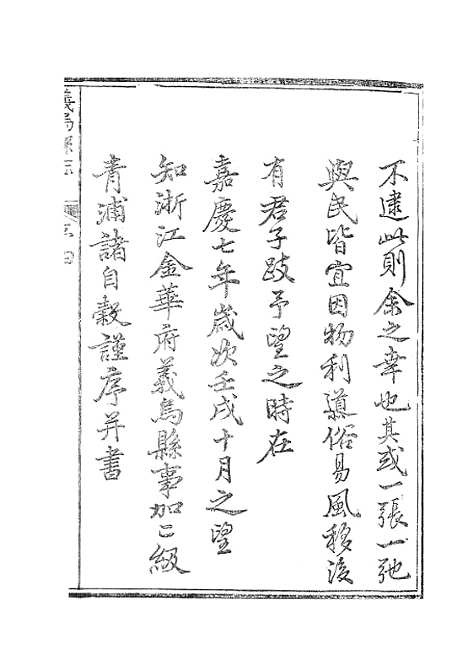 不逮此則余之幸也其或一張一弛
與民皆宜因物利導俗易風移後
有君子跂予望之時在
嘉慶七年歲次壬戌十月之望
知浙江金華府義烏縣事加二級
青浦諸自穀謹序并書
義烏縣志 序 四